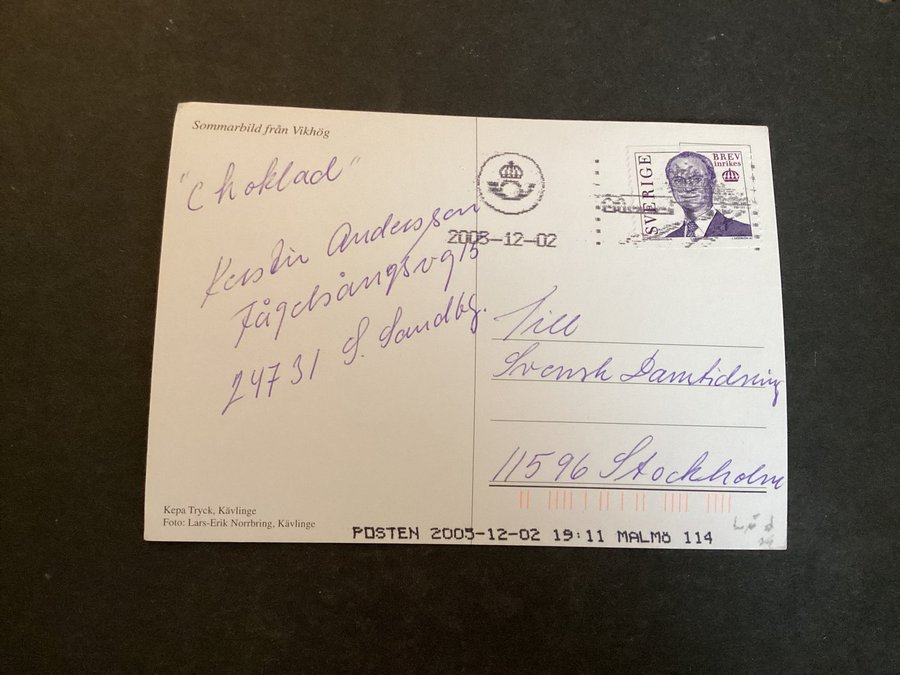 Sommarbild från Vikhög
"Choklad"
Kerstin Andersson
Fågelsångsvg 15
24731 S. Sandby.
Kepa Tryck, Kävlinge
Foto: Lars-Erik Norrbring, Kävlinge
2005-12-02
SVERIGE
BREV
inrikes
Till
Svensk Damtidning
11596 Stockholm
POSTEN 2005-12-02 19:11 MALMö 114